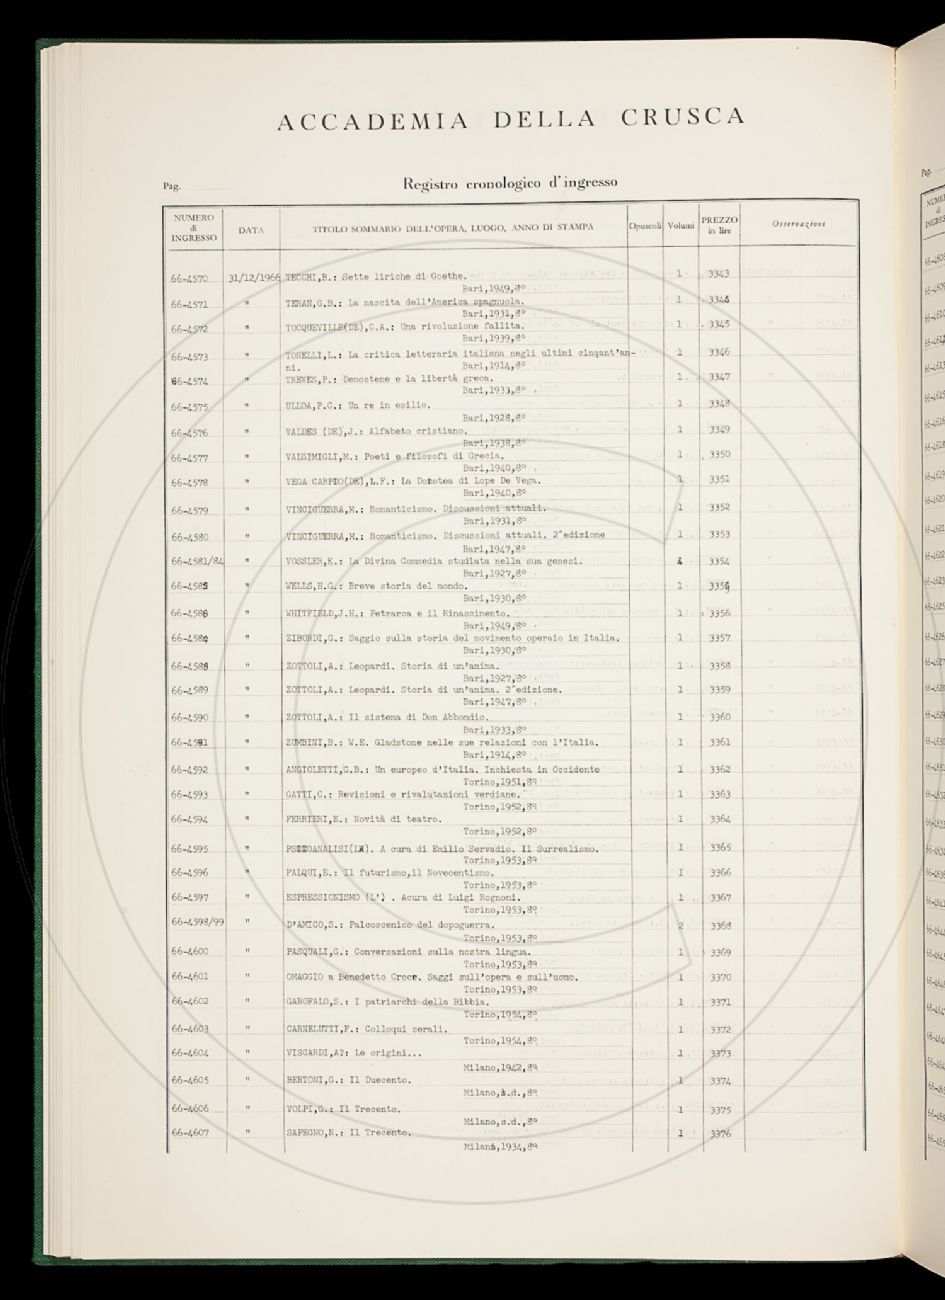 ACCADEMIA DELLA CRUSCA
Pag. Registro cronologico d'ingresso
NUMERO di INGRESSO DATA TITOLO SOMMARIO DELL'OPERA, LUOGO, ANNO DI STAMPA Opuscoli Volumi PREZZO in lire Osservazioni
66-4570 31/12/1966 TECCHI,B.: Sette liriche di Goethe. 1 3343
Bari,1949,8°
66-4571 " TERAN,G.B.: La nascita dell'America spagnuola. 1 3344
Bari,1931,8°
66-4572 " TOCQUEVILLE(DE),C.A.: Una rivoluzione fallita. 1 3345
Bari,1939,8°
66-4573 " TONELLI,L.: La critica letteraria italiana negli ultimi cinqant'an- 1 3346
ni. Bari,1914,8°
66-4574 " TREVES,P.: Demostene e la libertà greca. 1 3347
Bari,1933,8°
66-4575 " ULLOA,P.C.: Un re in esilio. 1 3348
Bari,1928,8°
66-4576 " VALDES (DE),J.: Alfabeto cristiano. 1 3349
Bari,1938,8°
66-4577 " VALGIMIGLI,M.: Poeti e filosofi di Grecia. 1 3350
Bari,1940,8°
66-4578 " VEGA CARPIO(DE),L.F.: La Dorotea di Lope De Vega. 1 3351
Bari,1940,8°
66-4579 " VINCIGUERRA,M.: Romanticismo. Discussioni attuali. 1 3352
Bari,1931,8°
66-4580 " VINCIGUERRA,M.: Romanticismo. Discussioni attuali. 2^edizione 1 3353
Bari,1947,8°
66-4581/84 " VOSSLER,K.: La Divina Commedia studiata nella sua genesi. 4 3354
Bari,1927,8°
66-4585 " WELLS,H.G.: Breve storia del mondo. 1 3355
Bari,1930,8°
66-4586 " WHITFIELD,J.H.: Petrarca e il Rinascimento. 1 3356
Bari,1949,8°
" ZIBORDI,G.: Saggio sulla storia del movimento operaio in Italia. 1 3357
Bari,1930,8°
66-4588 " ZOTTOLI,A.: Leopardi. Storia di un'anima. 1 3358
Bari,1927,8°
66-4589 " ZOTTOLI,A.: Leopardi. Storia di un'anima. 2^edizione. 1 3359
Bari,1947,8°
66-4590 " ZOTTOLI,A.: Il sistema di Don Abbondio. 1 3360
Bari,1933,8°
66-4591 " ZUMBINI,B.: W.E. Gladstone nelle sue relazioni con l'Italia. 1 3361
Bari,1914,8°
66-4592 " ANGIOLETTI,G.B.: Un europeo d'Italia. Inchiesta in Occidente 1 3362
Torino,1951,8°
66-4593 " GATTI,C.: Revisioni e rivalutazioni verdiane. 1 3363
Torino,1952,8°
66-4594 " FERRIERI,E.: Novità di teatro. 1 3364
Torino,1952,8°
66-4595 " PSICOANALISI(LA). A cura di Emilio Servadio. Il Surrealismo. 1 3365
Torino,1953,8°
66-4596 " FALQUI,E.: Il futurismo,il Novecentismo. 1 3366
Torino,1953,8°
66-4597 " ESPRESSIONISMO (L') . Acura di Luigi Rognoni. 1 3367
Torino,1953,8°
66-4598/99 " D'AMICO,S.: Palcoscenico del dopoguerra. 2 3368
Torino,1953,8°
66-4600 " PASQUALI,G.: Conversazioni sulla nostra lingua. 1 3369
Torino,1953,8°
66-4601 " OMAGGIO a Benedetto Croce. Saggi sull'opera e sull'uomo. 1 3370
Torino,1953,8°
66-4602 " GAROFALO,S.: I patriarchi della Bibbia. 1 3371
Torino,1954,8°
66-4603 " CARNELUTTI,F.: Colloqui serali. 1 3372
Torino,1954,8°
66-4604 " VISCARDI,A?: Le origini... 1 3373
Milano,1942,8°
66-4605 " BERTONI,G.: Il Duecento. 1 3374
Milano,s.d.,8°
66-4606 " VOLPI,G.: Il Trecento. 1 3375
Milano,s.d.,8°
66-4607 " SAPEGNO,N.: Il Trecento. 1 3376
Milano,1934,8°